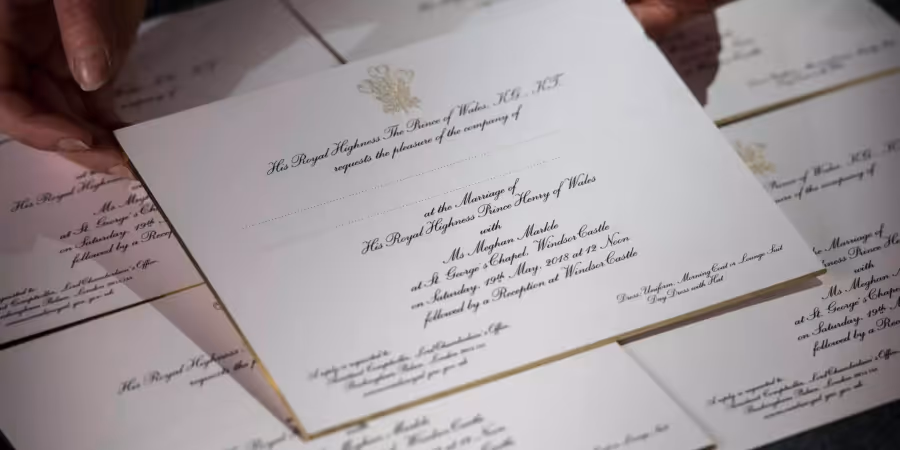 His Royal Highness The Prince of Wales, K.G., K.T.
requests the pleasure of the company of
at the Marriage of
His Royal Highness Prince Henry of Wales
with
Ms. Meghan Markle
at St. George's Chapel, Windsor Castle
on Saturday, 19th May, 2018 at 12 Noon
followed by a Reception at Windsor Castle
Dress: Uniform, Morning Coat or Lounge Suit
Day Dress with Hat
A reply is requested to:
Assistant Comptroller, Lord Chamberlain's Office,
Buckingham Palace, London
His Royal Highness
requests the
Ms. Meg
at St. George's Ch
on Saturday, 19th
followed by a Recep
Comptroller, Lord Chamberlain's Office,
Palace, London
Prince of Wales, K.G., K.T.
of the company of
Marriage of
Highness Prince He
with
Ms. Meghan
at St. George's Chape
on Saturday, 19th M
followed by a Re
A reply is requested to:
Assistant Comptroller, Lord Chamberlain's Office,
Buckingham Palace, London
Meghan Markle
Windsor Castle
at 12 Noon
Lounge Suit